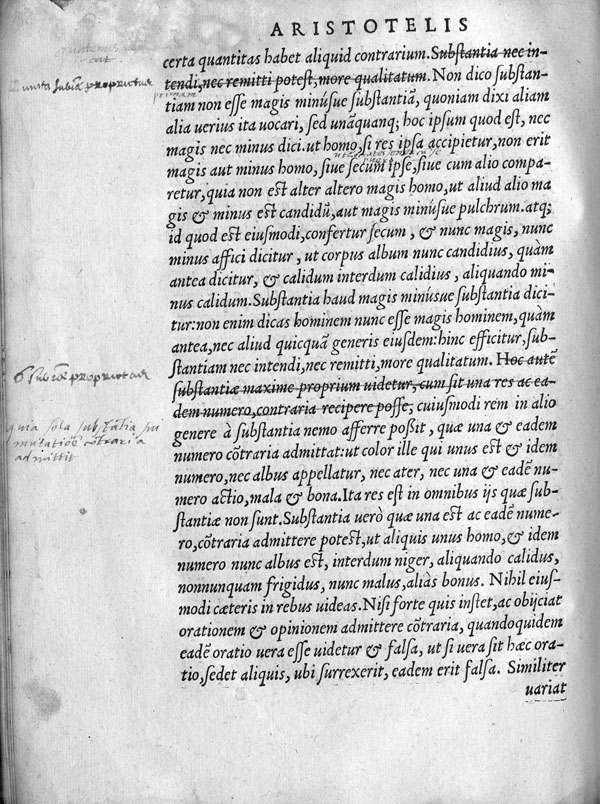 ARISTOTELIS
certa quantitas habet aliquid contrarium. Substantia nec in-
tendi, nec remitti potest, more qualitatum. Non dico substan-
tiam non esse magis minúsue substantiã, quoniam dixi aliam
alia uerius ita uocari, sed unãquanq; hoc ipsum quod est, nec
magis nec minus dici. ut homo, si res ipsa accipietur, non erit
magis aut minus homo, siue secum ipse, siue cum alio compa-
retur, quia non est alter altero magis homo, ut aliud alio ma
gis & minus est candidũ, aut magis minúsue pulchrum. atq;
id quod est eiusmodi, confertur secum, & nunc magis, nunc
minus affici dicitur, ut corpus album nunc candidius, quàm
antea dicitur, & calidum interdum calidius, aliquando mi-
nus calidum. Substantia haud magis minusue substantia dici-
tur: non enim dicas hominem nunc esse magis hominem, quàm
antea, nec aliud quicquã generis eiusdem: hinc efficitur, sub-
stantiam nec intendi, nec remitti, more qualitatum. Hoc autē
substantiæ maxime proprium uidetur, cum sit una res ac ea-
dem numero, contraria recipere posse, cuiusmodi rem in alio
genere à substantia nemo afferre poßit, quæ una & eadem
numero cõtraria admittat: ut color ille qui unus est & idem
numero, nec albus appellatur, nec ater, nec una & eadē nu-
mero actio, mala & bona. Ita res est in omnibus ijs quæ sub-
stantiæ non sunt. Substantia uerò quæ una est ac eadē nume-
ro, cõtraria admittere potest, ut aliquis unus homo, & idem
numero nunc albus est, interdum niger, aliquando calidus,
nonnunquam frigidus, nunc malus, aliàs bonus. Nihil eius-
modi cæteris in rebus uideas. Nisi forte quis instet, ac obijciat
orationem & opinionem admittere cõtraria, quandoquidem
eadē oratio uera esse uidetur & falsa, ut si uera sit hæc ora-
tio, sedet aliquis, ubi surrexerit, eadem erit falsa. Similiter
uariat
primam
6 subiæ proprietas
quia sola substãtia sui
mutatiõe cõtraria
admittit